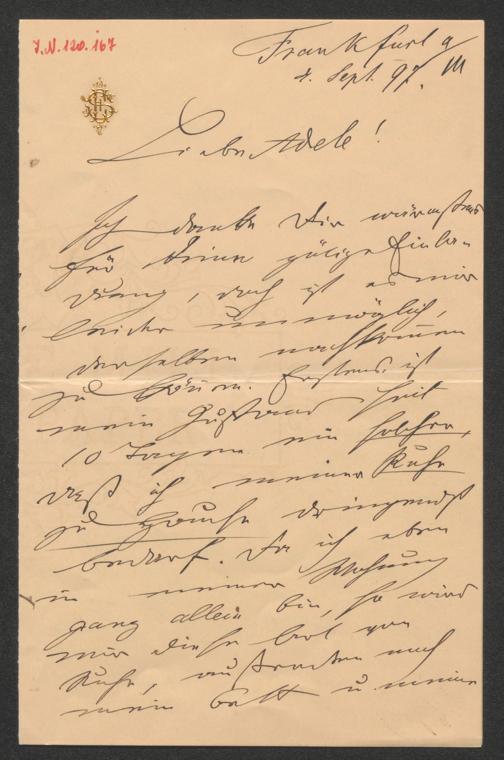 I.N. 120.167
Frankfurt a/M
4. Sept. 97.
Liebe Adele!
Ich danke Dir wärmstens
für Deine gütige Einla-
dung, doch ist es mir
leider unmöglich,
derselben nachkommen
zu können. Erstens ist
mein Zustand seit
10 Tagen ein solcher,
daß ich meiner Ruhe
zu Hause dringendst
bedarf. Da ich eben
in meiner Wohnung
ganz allein bin, so wird
mir diese dort
Ruhe, außerdem auch
mein Bett u meine